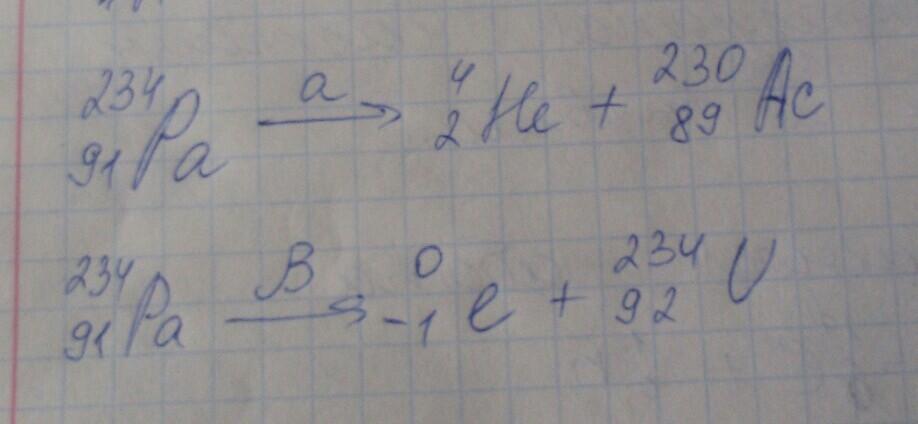 ²³⁴₉₁Pa —a→ ⁴₂He + ²³⁰₈₉Ac
²³⁴₉₁Pa —β→ ⁰₋₁e + ²³⁴₉₂U